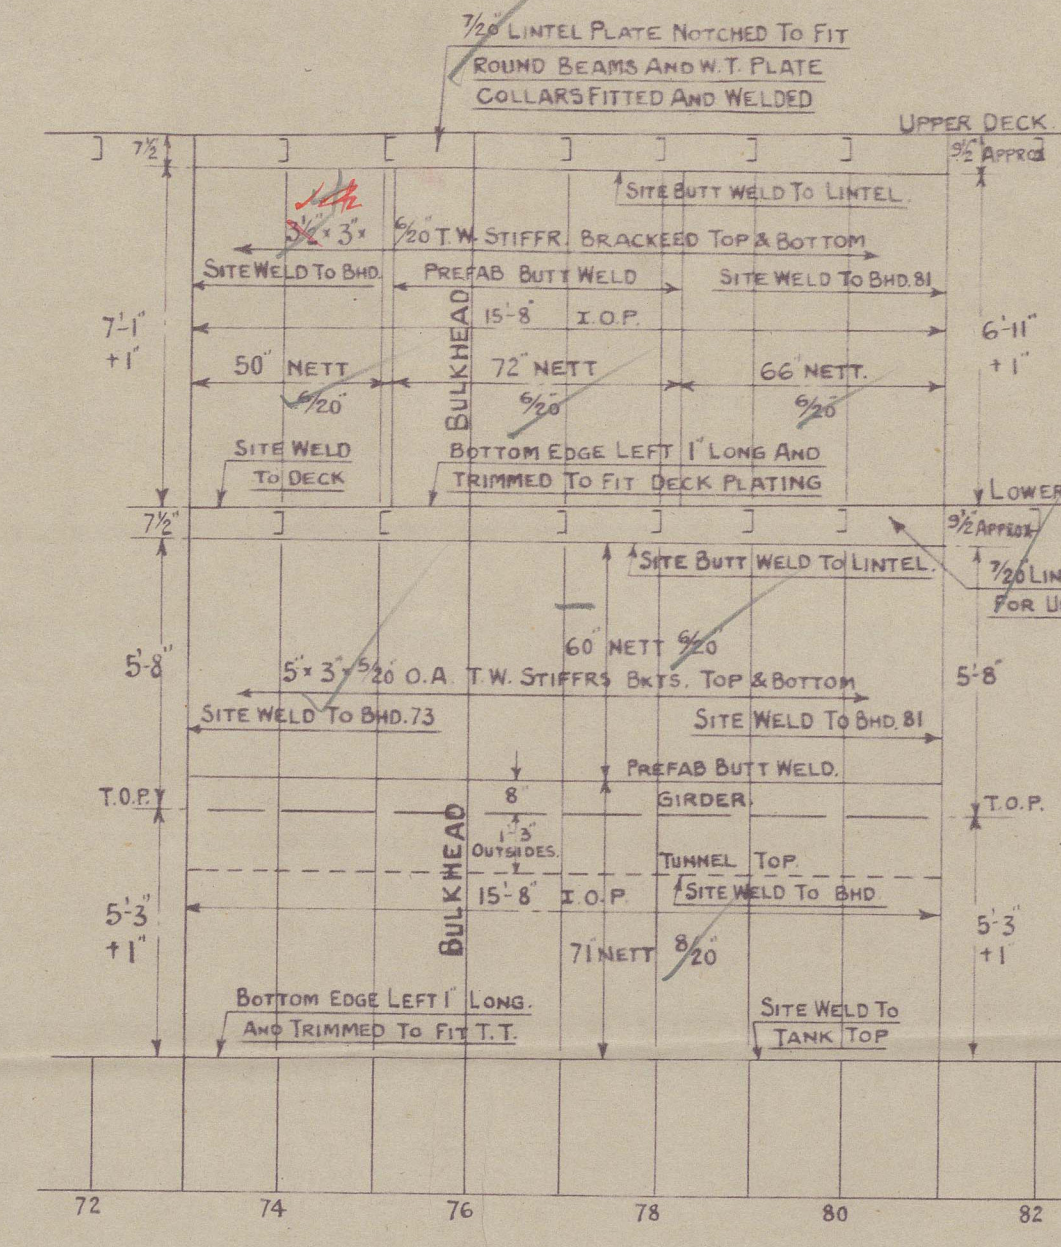 7/20" LINTEL PLATE NOTCHED TO FIT
ROUND BEAMS AND W.T. PLATE
COLLARS FITTED AND WELDED
UPPER DECK.
7½"
9½" APPROX
SITE BUTT WELD TO LINTEL.
3½" × 3" × 6/20" T.W. STIFFR. BRACKEED TOP & BOTTOM
SITE WELD TO BHD.
PREFAB BUTT WELD
SITE WELD TO BHD. 81
7'-1"
+1"
15'-8" I.O.P.
6'-11"
+1"
BULKHEAD
50" NETT
72" NETT
66" NETT.
6/20"
6/20"
6/20"
SITE WELD
TO DECK
BOTTOM EDGE LEFT 1" LONG AND
TRIMMED TO FIT DECK PLATING
LOWER
7½"
9½" APPROX
SITE BUTT WELD TO LINTEL.
7/20" LIN
FOR U
60" NETT 6/20"
5'-8"
5" × 3" × 5/20" O.A. T.W. STIFFRS BKTS. TOP & BOTTOM
5'-8"
SITE WELD TO BHD. 73
SITE WELD TO BHD. 81
PREFAB BUTT WELD.
T.O.P.
8"
GIRDER.
T.O.P.
1'-3"
OUTSIDES.
TUNNEL TOP.
BULKHEAD
15'-8" I.O.P.
SITE WELD TO BHD
5'-3"
+1"
5'-3"
+1"
71" NETT 8/20"
BOTTOM EDGE LEFT 1" LONG.
AND TRIMMED TO FIT T.T.
SITE WELD TO
TANK TOP
72 74 76 78 80 82